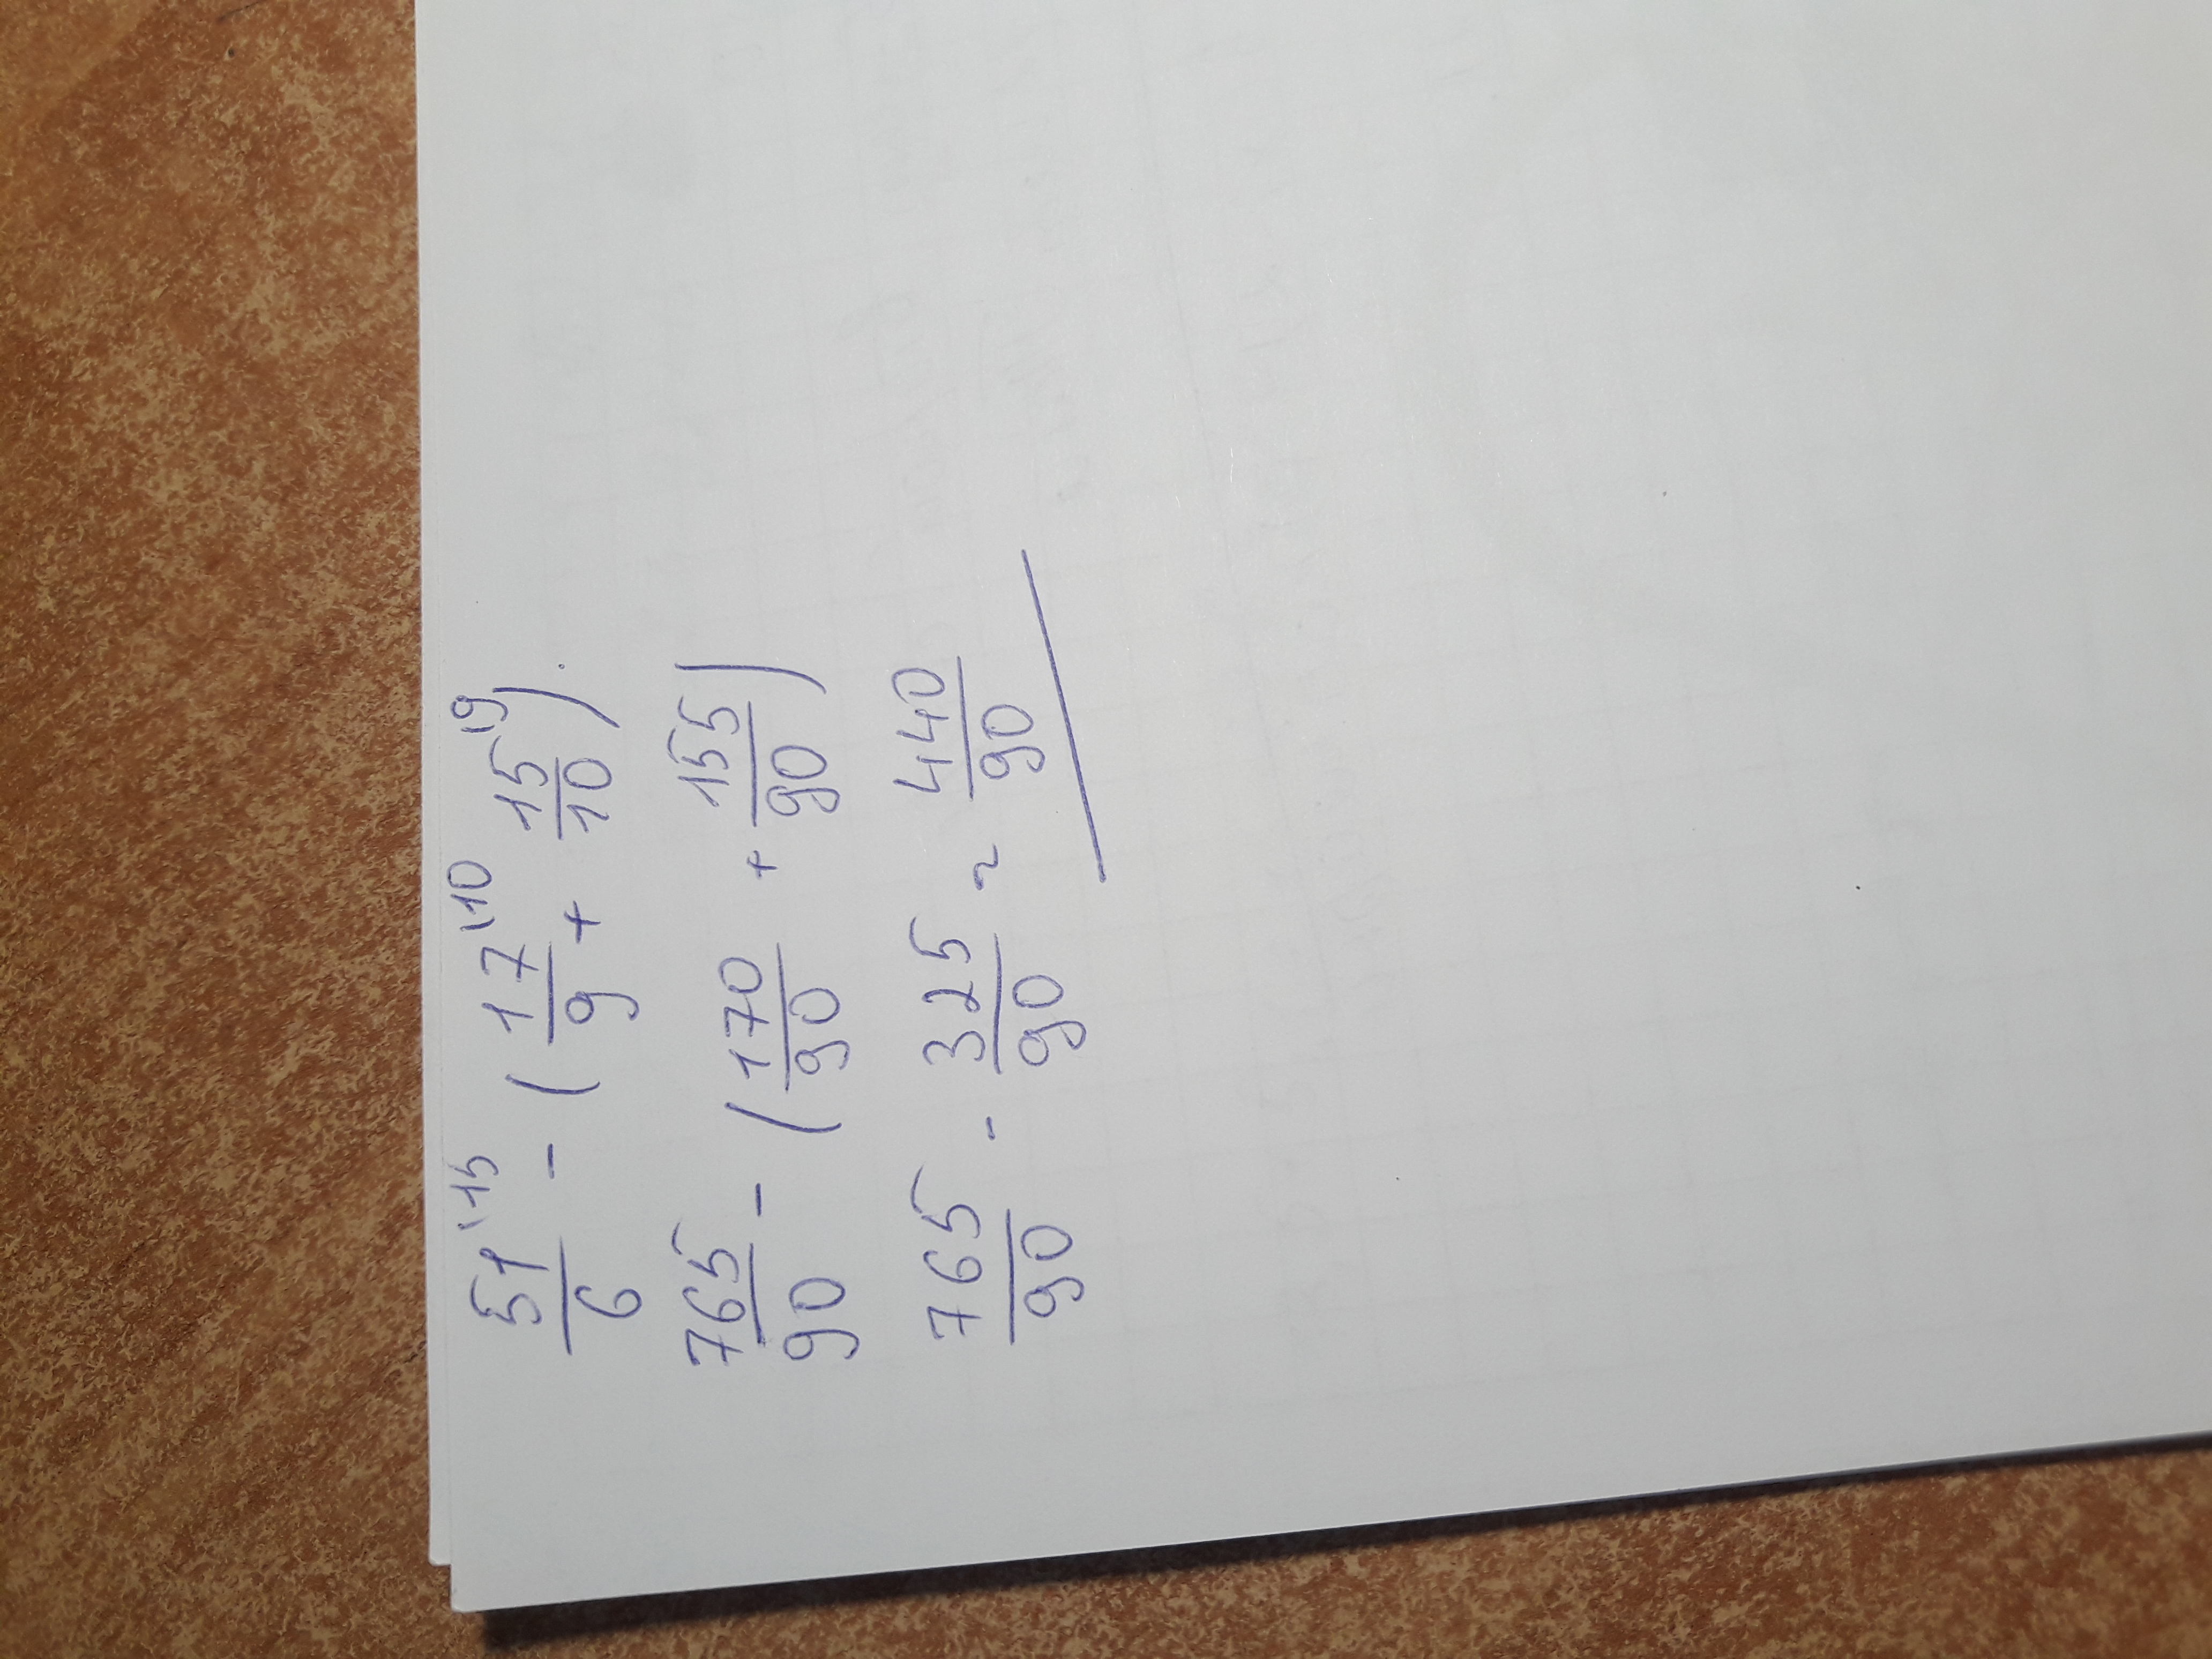 51/6 '15 - (17/9 '10 + 15/10 '9).
765/90 - (170/90 + 155/90)
765/90 - 325/90 ~ 440/90